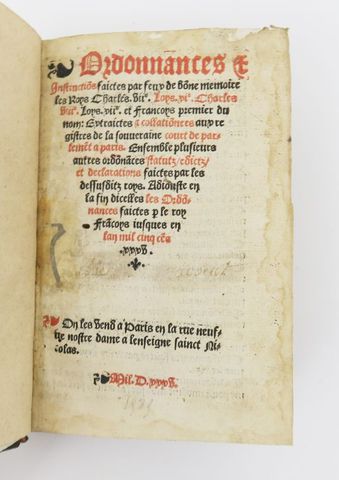 Ordonnāces &
Instructiōs faictes par feu de bōne memoire
les Roys Charles. vii⁹. Loys. xi⁹. Charles
viii⁹. Loys. xii⁹. et Francoys premier du
nom: Extraictes & collatiōnees aux re
gistres de la souueraine court de par
lemēt a paris. Ensemble plusieurs
autres ordōnāces statutz/ edictz/
et declarations faictes par les
dessusditz roys. Adiouste en
la fin dicelles les Ordō-
nances faictes p le roy
Frācoys iusques en
lan mil cinq cēs
xxxv.
On les vend a Paris en la rue neuf-
ue nostre dame a lenseigne sainct Ni-
colas.
Mil. D. xxxv.